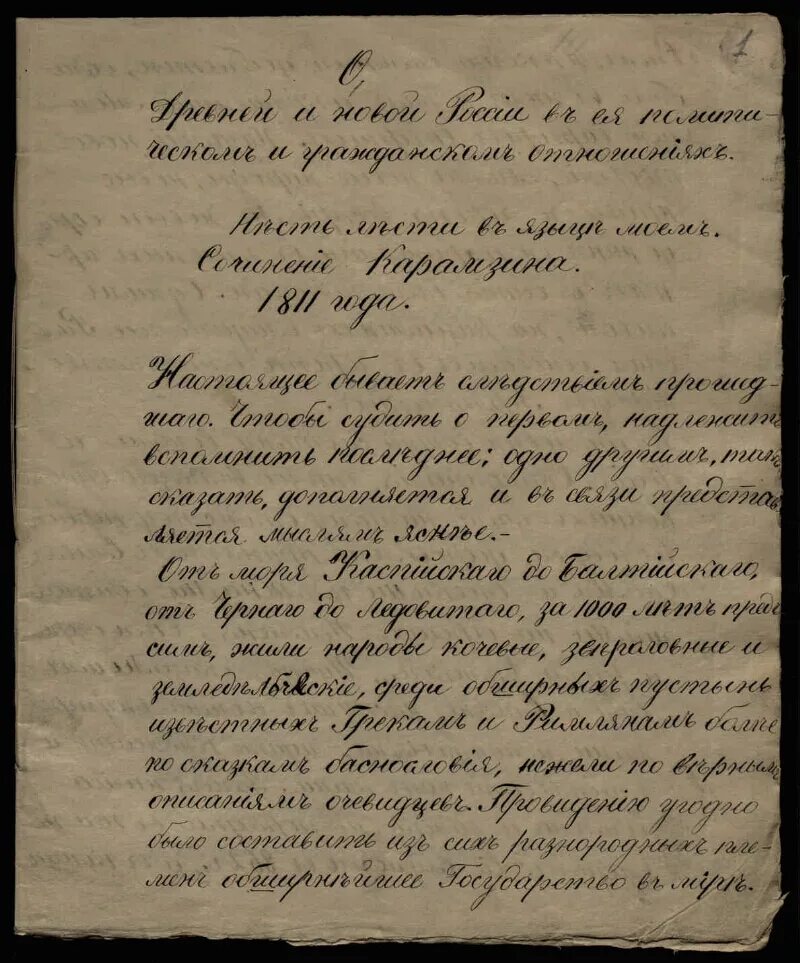 1
О,
Древней и новой Россіи въ ея полити-
ческомъ и гражданскомъ отношеніяхъ.
Нѣсть лѣсти въ языцѣ моемъ.
Сочиненіе Карамзина.
1811 года.
Настоящее бываетъ слѣдствіемъ прошед-
шаго. Чтобы судить о первомъ, надлежитъ
вспомнить послѣднее; одно другимъ, такъ
сказать, дополняется и въ связи представ
ляется мыслямъ яснѣе.-
Отъ моря Каспійскаго до Балтійскаго,
отъ Чернаго до Ледовитаго, за 1000 лѣтъ предъ
симъ, жили народы кочевые, звѣроловные и
земледѣльческіе, среди обширныхъ пустынь
извѣстныхъ Грекамъ и Римлянамъ болѣе
по сказкамъ баснословія, нежели по вѣрнымъ
описаніямъ очевидцевъ. Провидению угодно
было составить изъ сихъ разнородныхъ пле-
менъ обширнѣйшее Государство въ мірѣ.